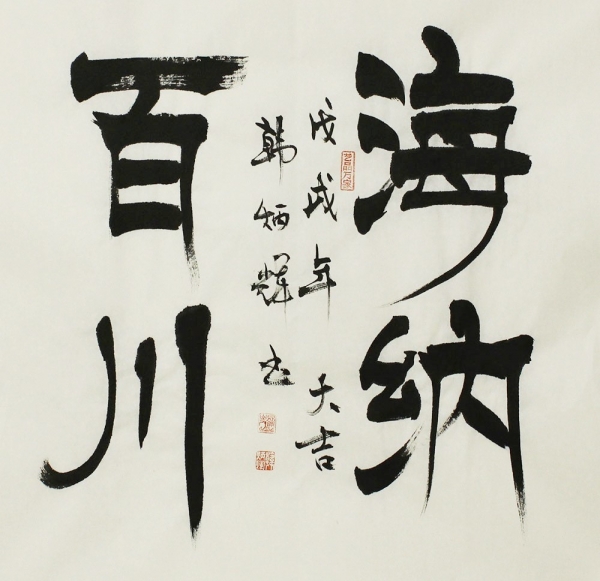 海纳
百川
戊戌年大吉
韩炳辉书